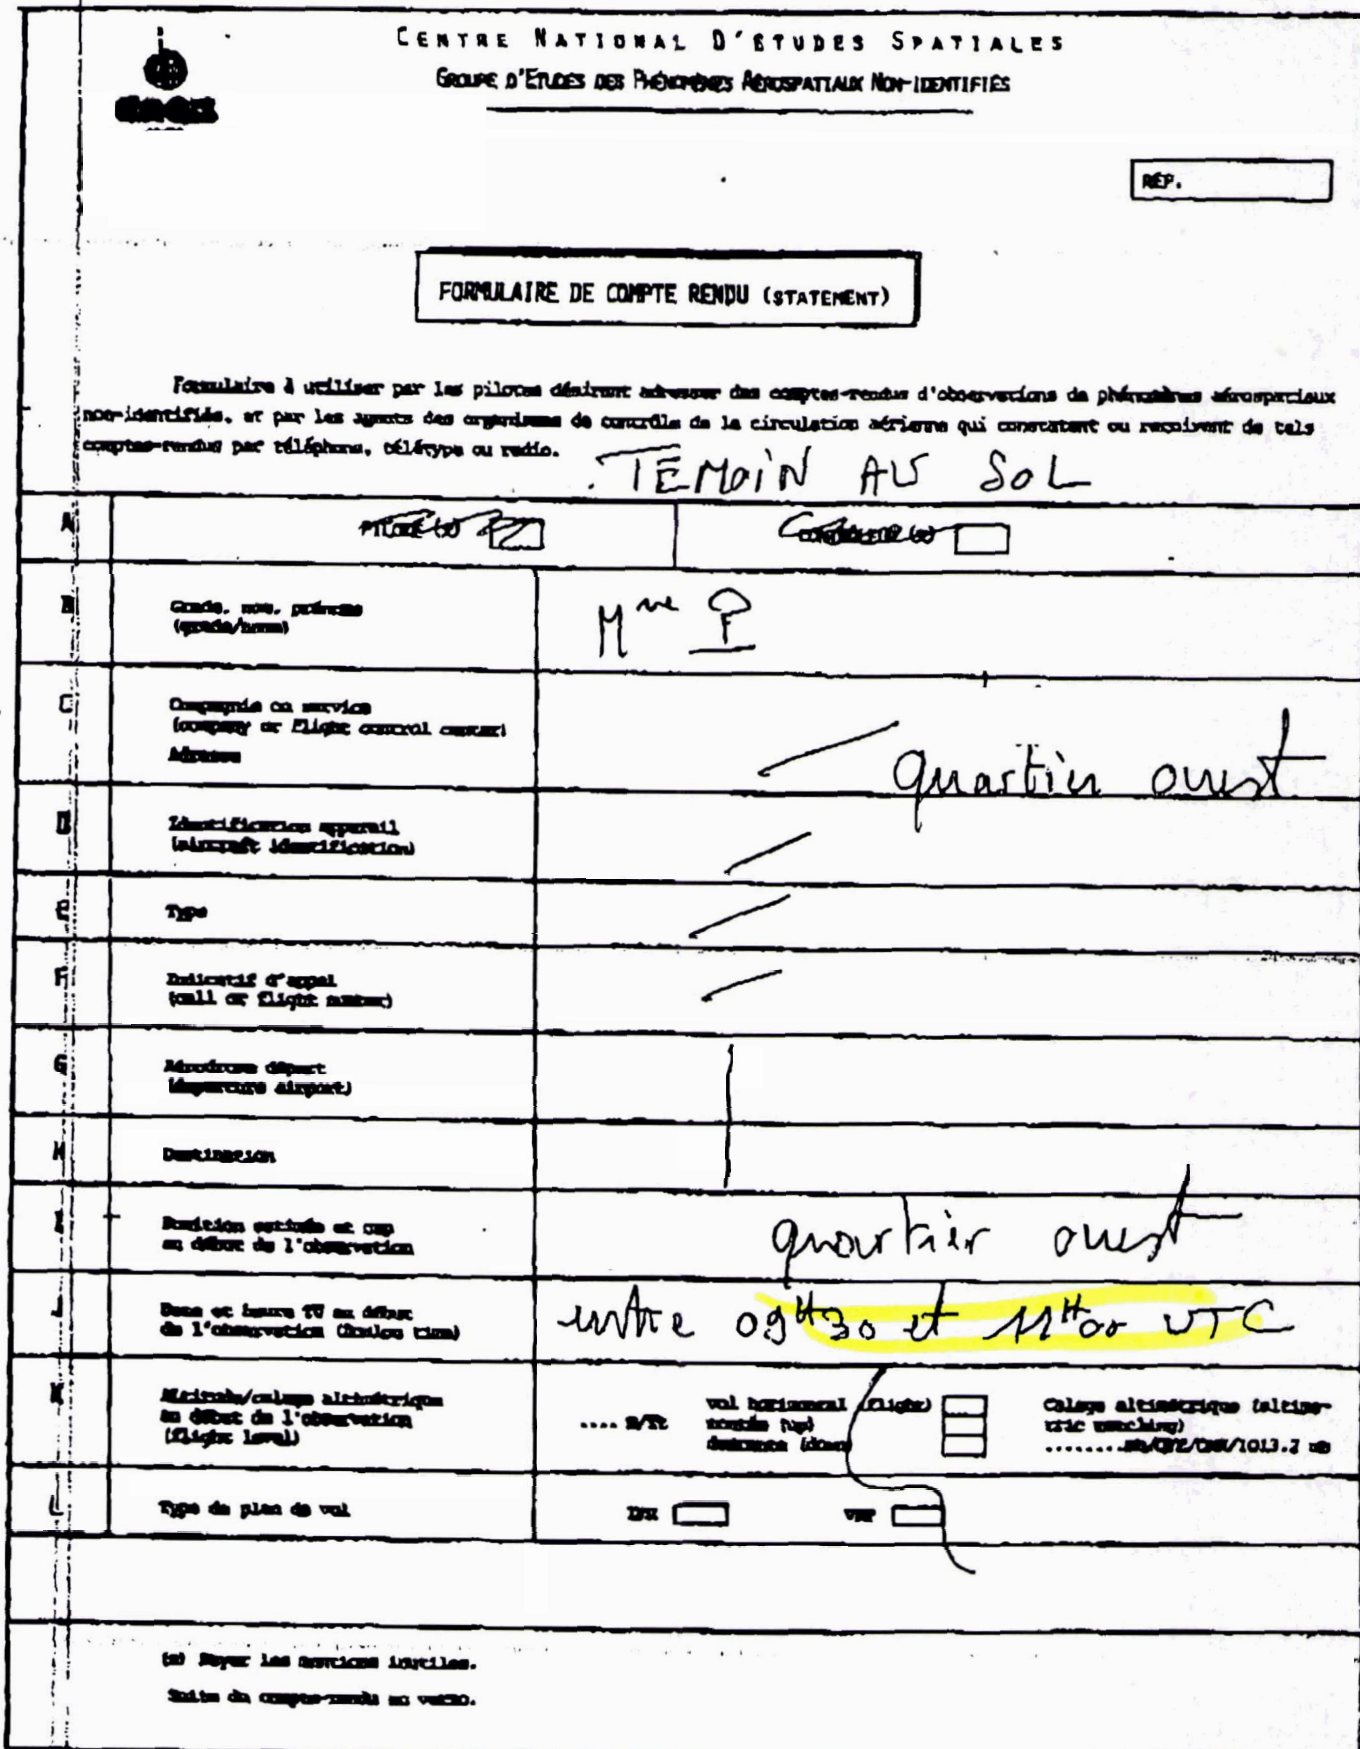 CENTRE NATIONAL D'ETUDES SPATIALES
GROUPE D'ETUDES DES PHÉNOMÈNES AÉROSPATIAUX NON-IDENTIFIÉS
RÉF.
FORMULAIRE DE COMPTE RENDU (STATEMENT)
Formulaire à utiliser par les pilotes désirant adresser des comptes-rendus d'observations de phénomènes aérospatiaux
non-identifiés, et par les agents des organismes de contrôle de la circulation aérienne qui constatent ou reçoivent de tels
comptes-rendus par téléphone, télétype ou radio.
TEMOIN AU SOL
A PILOTE (x) CONTROLEUR (x)
B Grade, nom, prénoms M me P
(grade/name)
C Compagnie ou service
(company or Flight control center)
Adresse quartier ouest
D Identification appareil
(aircraft identification)
E Type
F Indicatif d'appel
(call or flight number)
G Aérodrome départ
(departure airport)
H Destination
I Position estimée et cap
au début de l'observation quartier ouest
J Date et heure TU au début
de l'observation (Zoulou time) entre 09H30 et 11H00 UTC
K Altitude/calage altimétrique
au début de l'observation
(flight level)
.... m/Ft
vol horizontal (flight)
montée (up)
descente (down)
Calage altimétrique (altime-
tric )
........mb/QFE/QNH/1013.2 mb
L Type de plan de vol IFR VFR
(x) Rayer les mentions inutiles.
Suite du compte-rendu au verso.